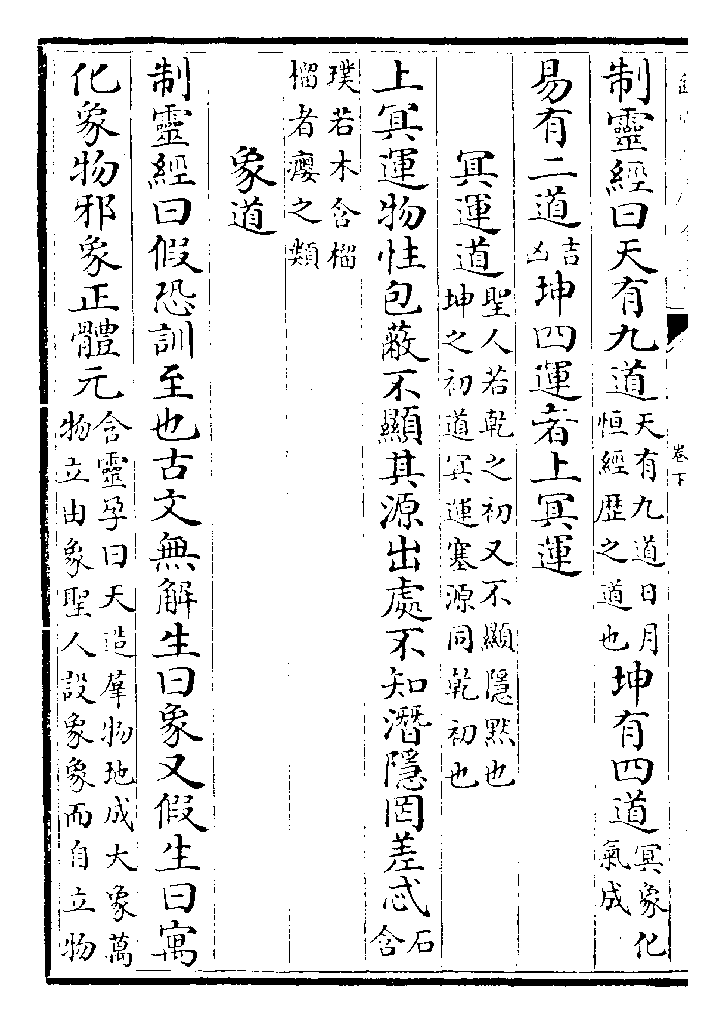 制靈經曰天有九道天有九道日月恒經歴之道也坤有四道冥象化氣成
易有二道吉凶坤四運者上冥運
冥運道聖人若乾之初又不顯隱黙也坤之初道冥運塞源同乾初也
上冥運物性包蔽不顯其源出處不知潛隱罔差忒石含
璞若木含榴榴者癭之類
象道
制靈經曰假恐訓至也古文無解生曰象又假生曰寓
化象物邪象正體元含靈孕曰天造羣物地成大象萬物立由象聖人設象象而自立物
卷下